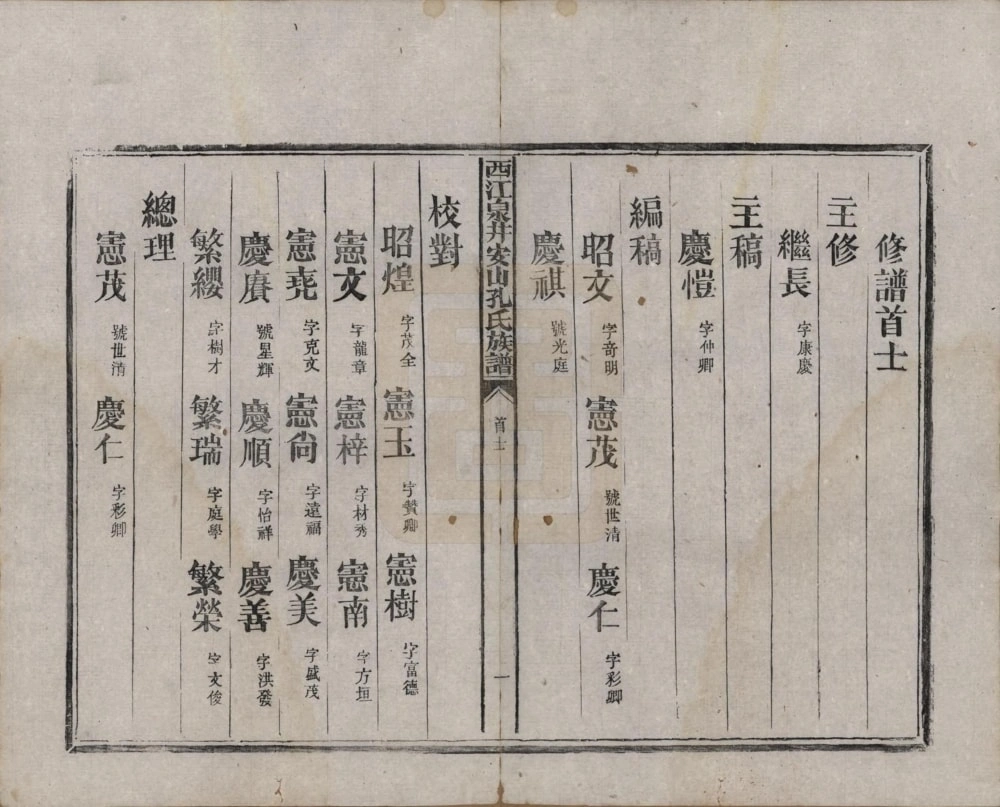 修譜首士
主修
繼長 字康慶
主稿
慶愷 字仲卿
編稿
昭文 字奇明 憲茂 號世清 慶仁 字彩卿
慶祺 號光庭
西江泉井安山孔氏族譜 首士 一
校對
昭煌 字茂全 憲玉 字贊卿 憲樹 字富德
憲文 字龍章 憲梓 字材秀 憲南 字方垣
憲堯 字克文 憲尙 字遠福 慶美 字盛茂
慶賡 號星輝 慶順 字怡祥 慶善 字洪發
繁纓 字樹才 繁瑞 字庭學 繁榮 字文俊
總理
憲茂 號世清 慶仁 字彩卿